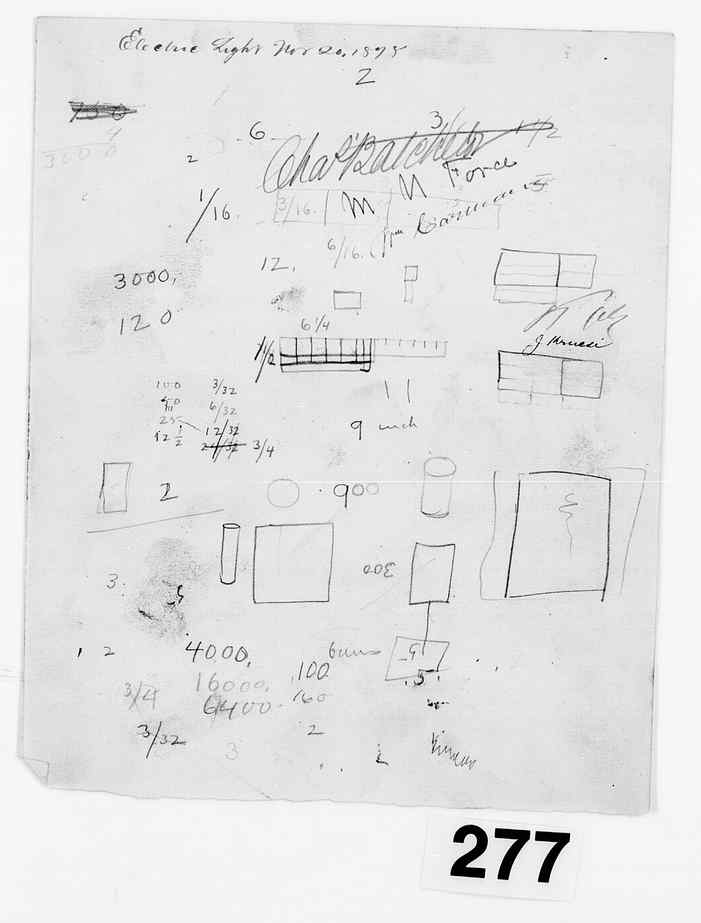 Electric Light Nov 20. 1875
2
700
9
3000
6
3/
1 1/2
2
Chas Batchelor
M N Force
1/16.
3/16.
6/16.
12.
3000,
120
J Kruesi
6 1/4
1 1/2
11
9 inch
100 3/32
50 6/32
25 12/32
12 1/2 24/32 3/4
2
900
300
3.
1 2
4000,
.100
5
16000,
.5.
3/4
6400
160
3/32
2
3
277